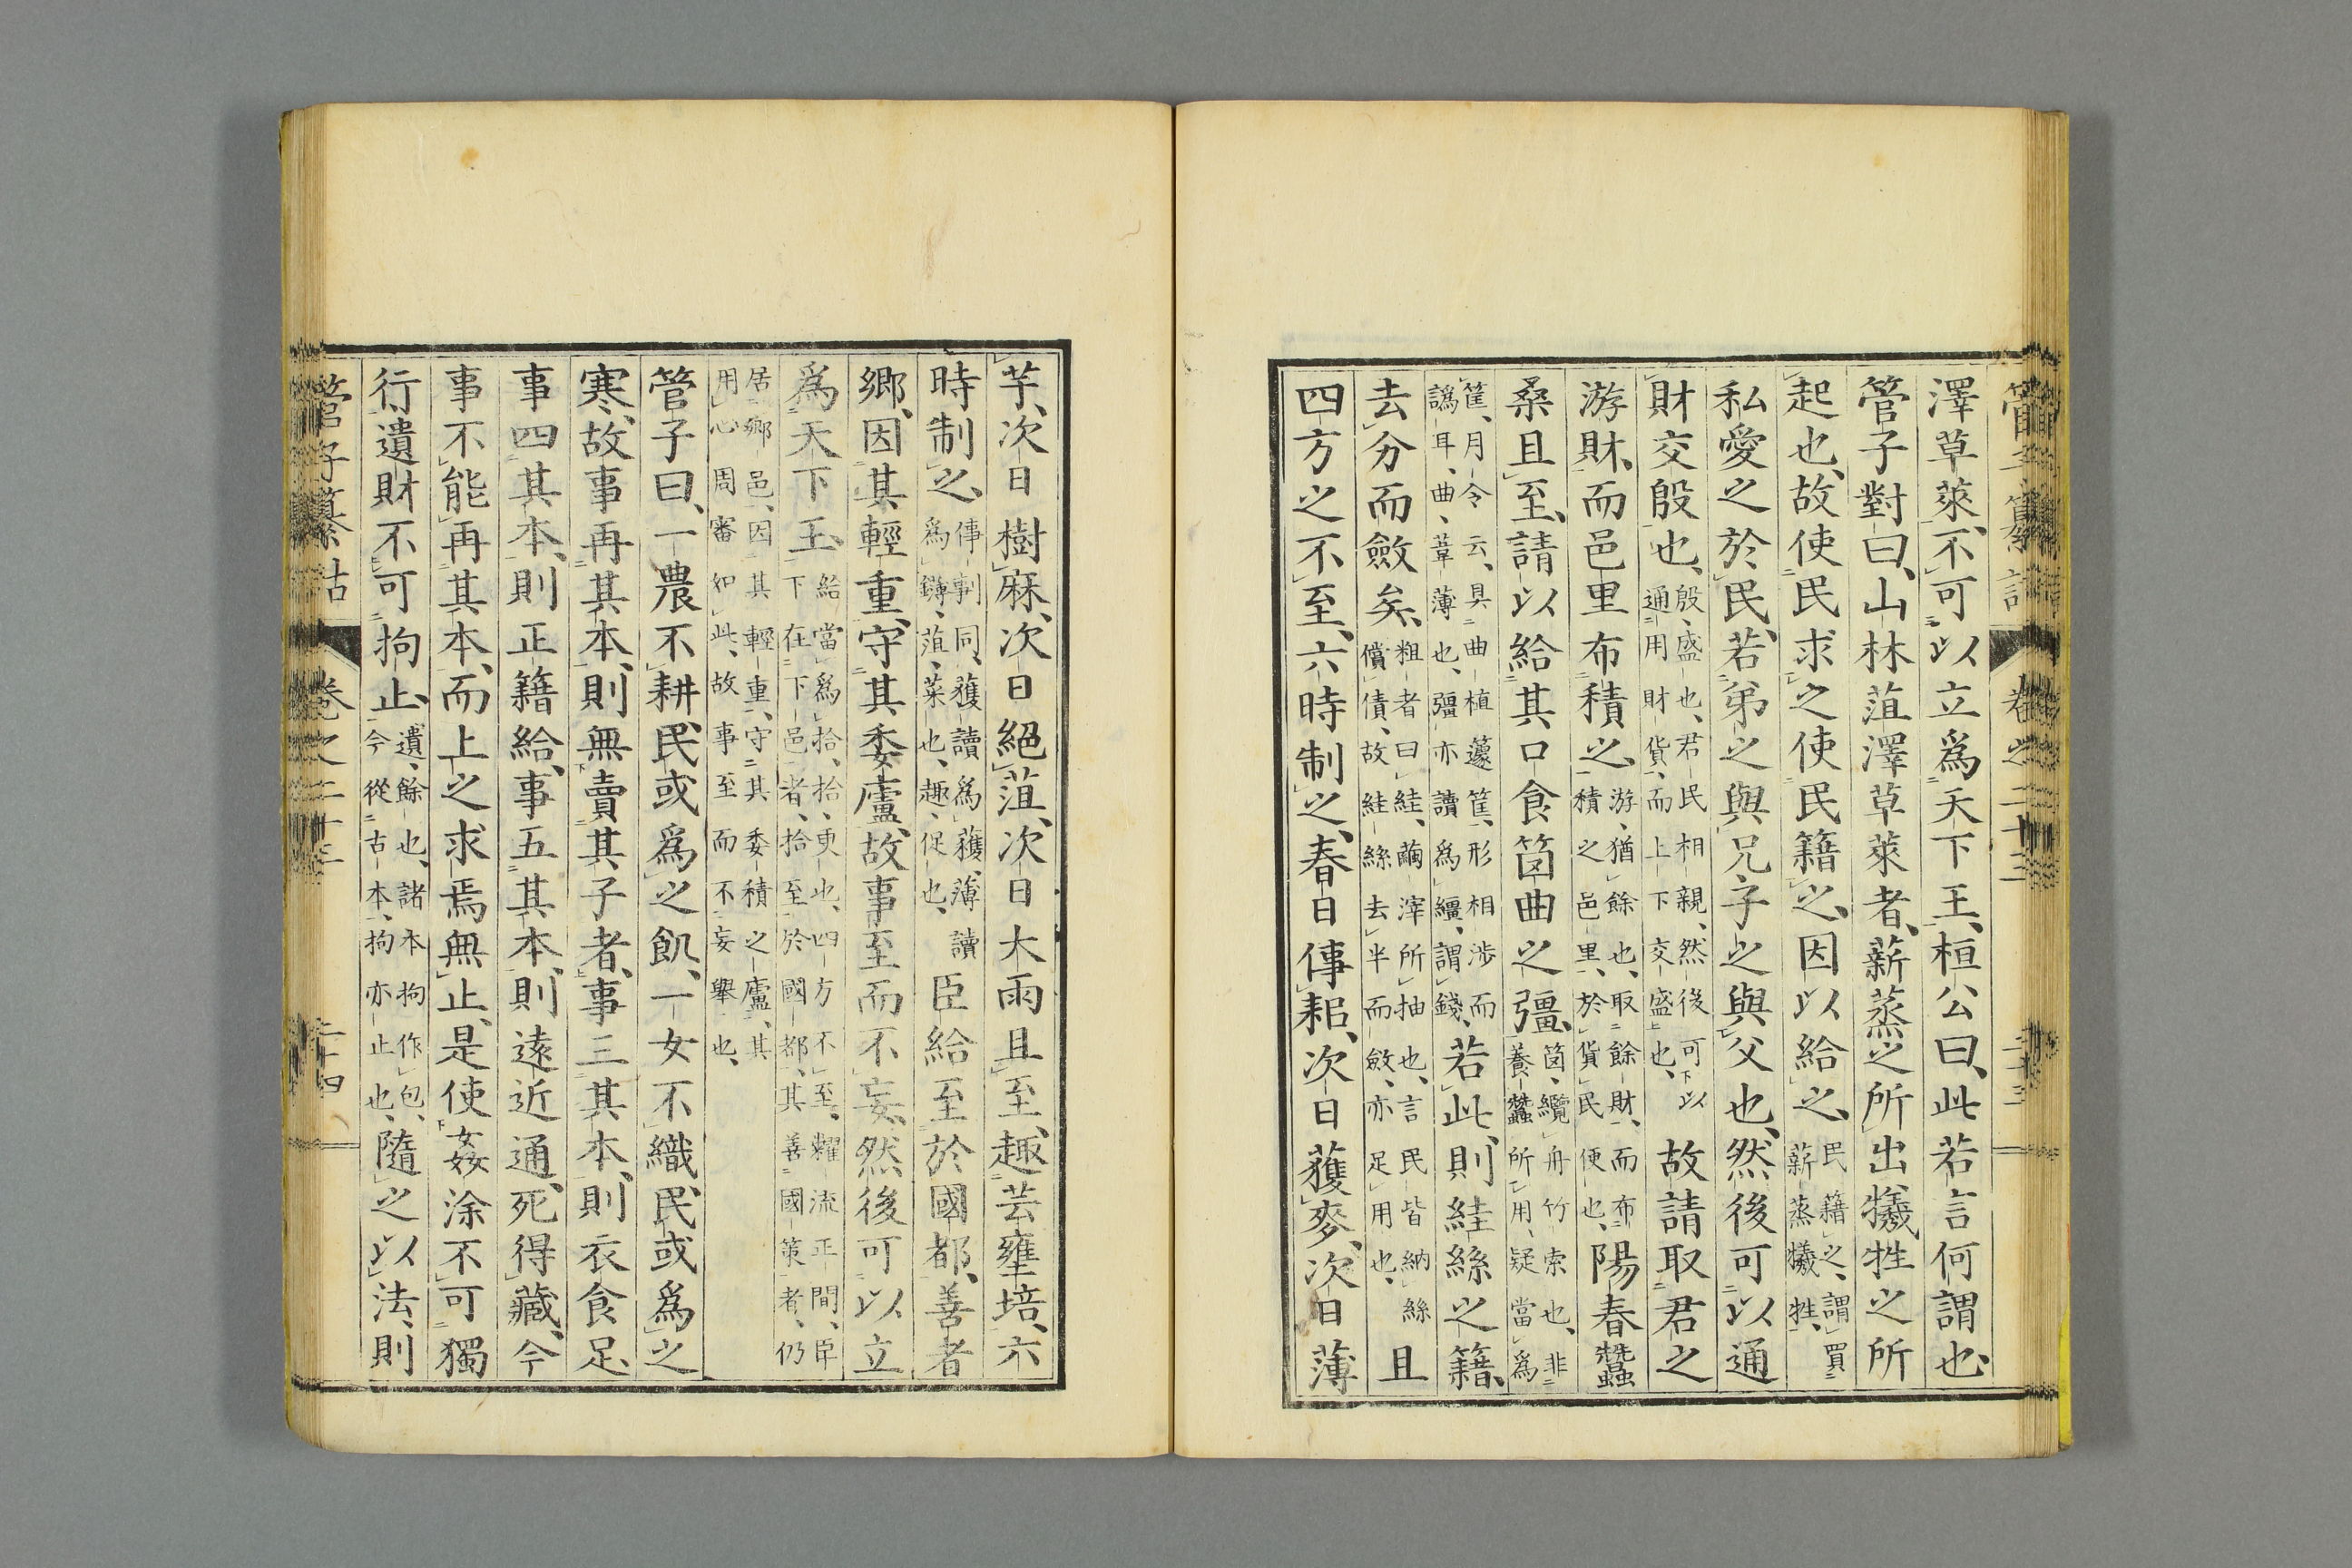 澤草萊、不可以立爲天下王、桓公曰、此若言何謂也、
管子對曰、山林菹澤草萊者、薪蒸之所出、犧牲之所
起也、故使民求之、使民籍之、因以給之、民籍之、謂買薪蒸犧牲、
私愛之於民、若弟之與兄、子之與父也、然後可以通
財交殷也、殷、盛也、君民相親、然後可以通用財貨、而上下交盛也、故請取君之
游財、而邑里布積之、游、猶餘也、取餘財、而布積之邑里、於貨民便也、陽春蠶
桑且至、請以給其口食筥曲之彊、筥、纜舟竹索也、非養蠶所用、疑當爲
筐、月令云、具曲植籧筐、形相涉而譌耳、曲、葦薄也、彊亦讀爲繦、謂錢、若此、則絓絲之籍、
去分而斂矣、粗者曰絓、繭滓所抽也、言民皆納絲償債、故絓絲去半而斂、亦足用也、且
四方之不至、六時制之、春日傳耜、次日穫麥、次日薄
芋、次日樹麻、次日絕菹、次日大雨且至、趣芸壅培、六
時制之、傳剚同、穫讀爲穫、薄讀爲鎛、菹、菜也、趣、促也、臣給至於國都、善者
鄉因其輕重、守其委廬、故事至而不妄、然後可以立
爲天下王、給當爲拾、拾、更也、四方不至、糶流正間、臣下在下邑者、拾至於國都、其善國策者、仍
居鄉邑、因其輕重、守其委積之廬、其用心周審如此、故事至而不妄舉也、
管子曰、一農不耕、民或爲之飢、一女不織、民或爲之
寒、故事再其本、則無賣其子者、事三其本、則衣食足、
事四其本、則正籍給、事五其本、則遠近通、死得藏、今
事不能再其本、而上之求焉無止、是使姦涂不可獨
行、遺財不可拘止、遺、餘也、諸本拘作包、今從古本、拘亦止也、隨之以法、則
管子纂詁 卷之二十三 二十四